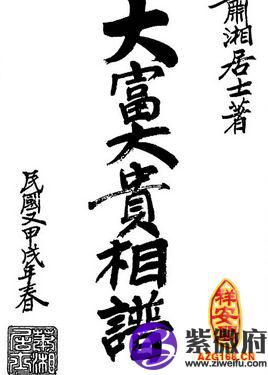 蕭湘居士著
大富大貴相譜
民國又甲戌年春
蕭湘
居士
祥安
AZG168.CN
紫微府
www.ziweifu.com